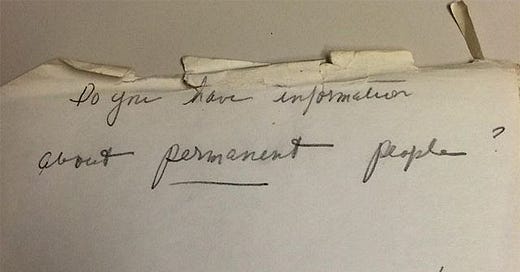 Do you have information
about permanent people?